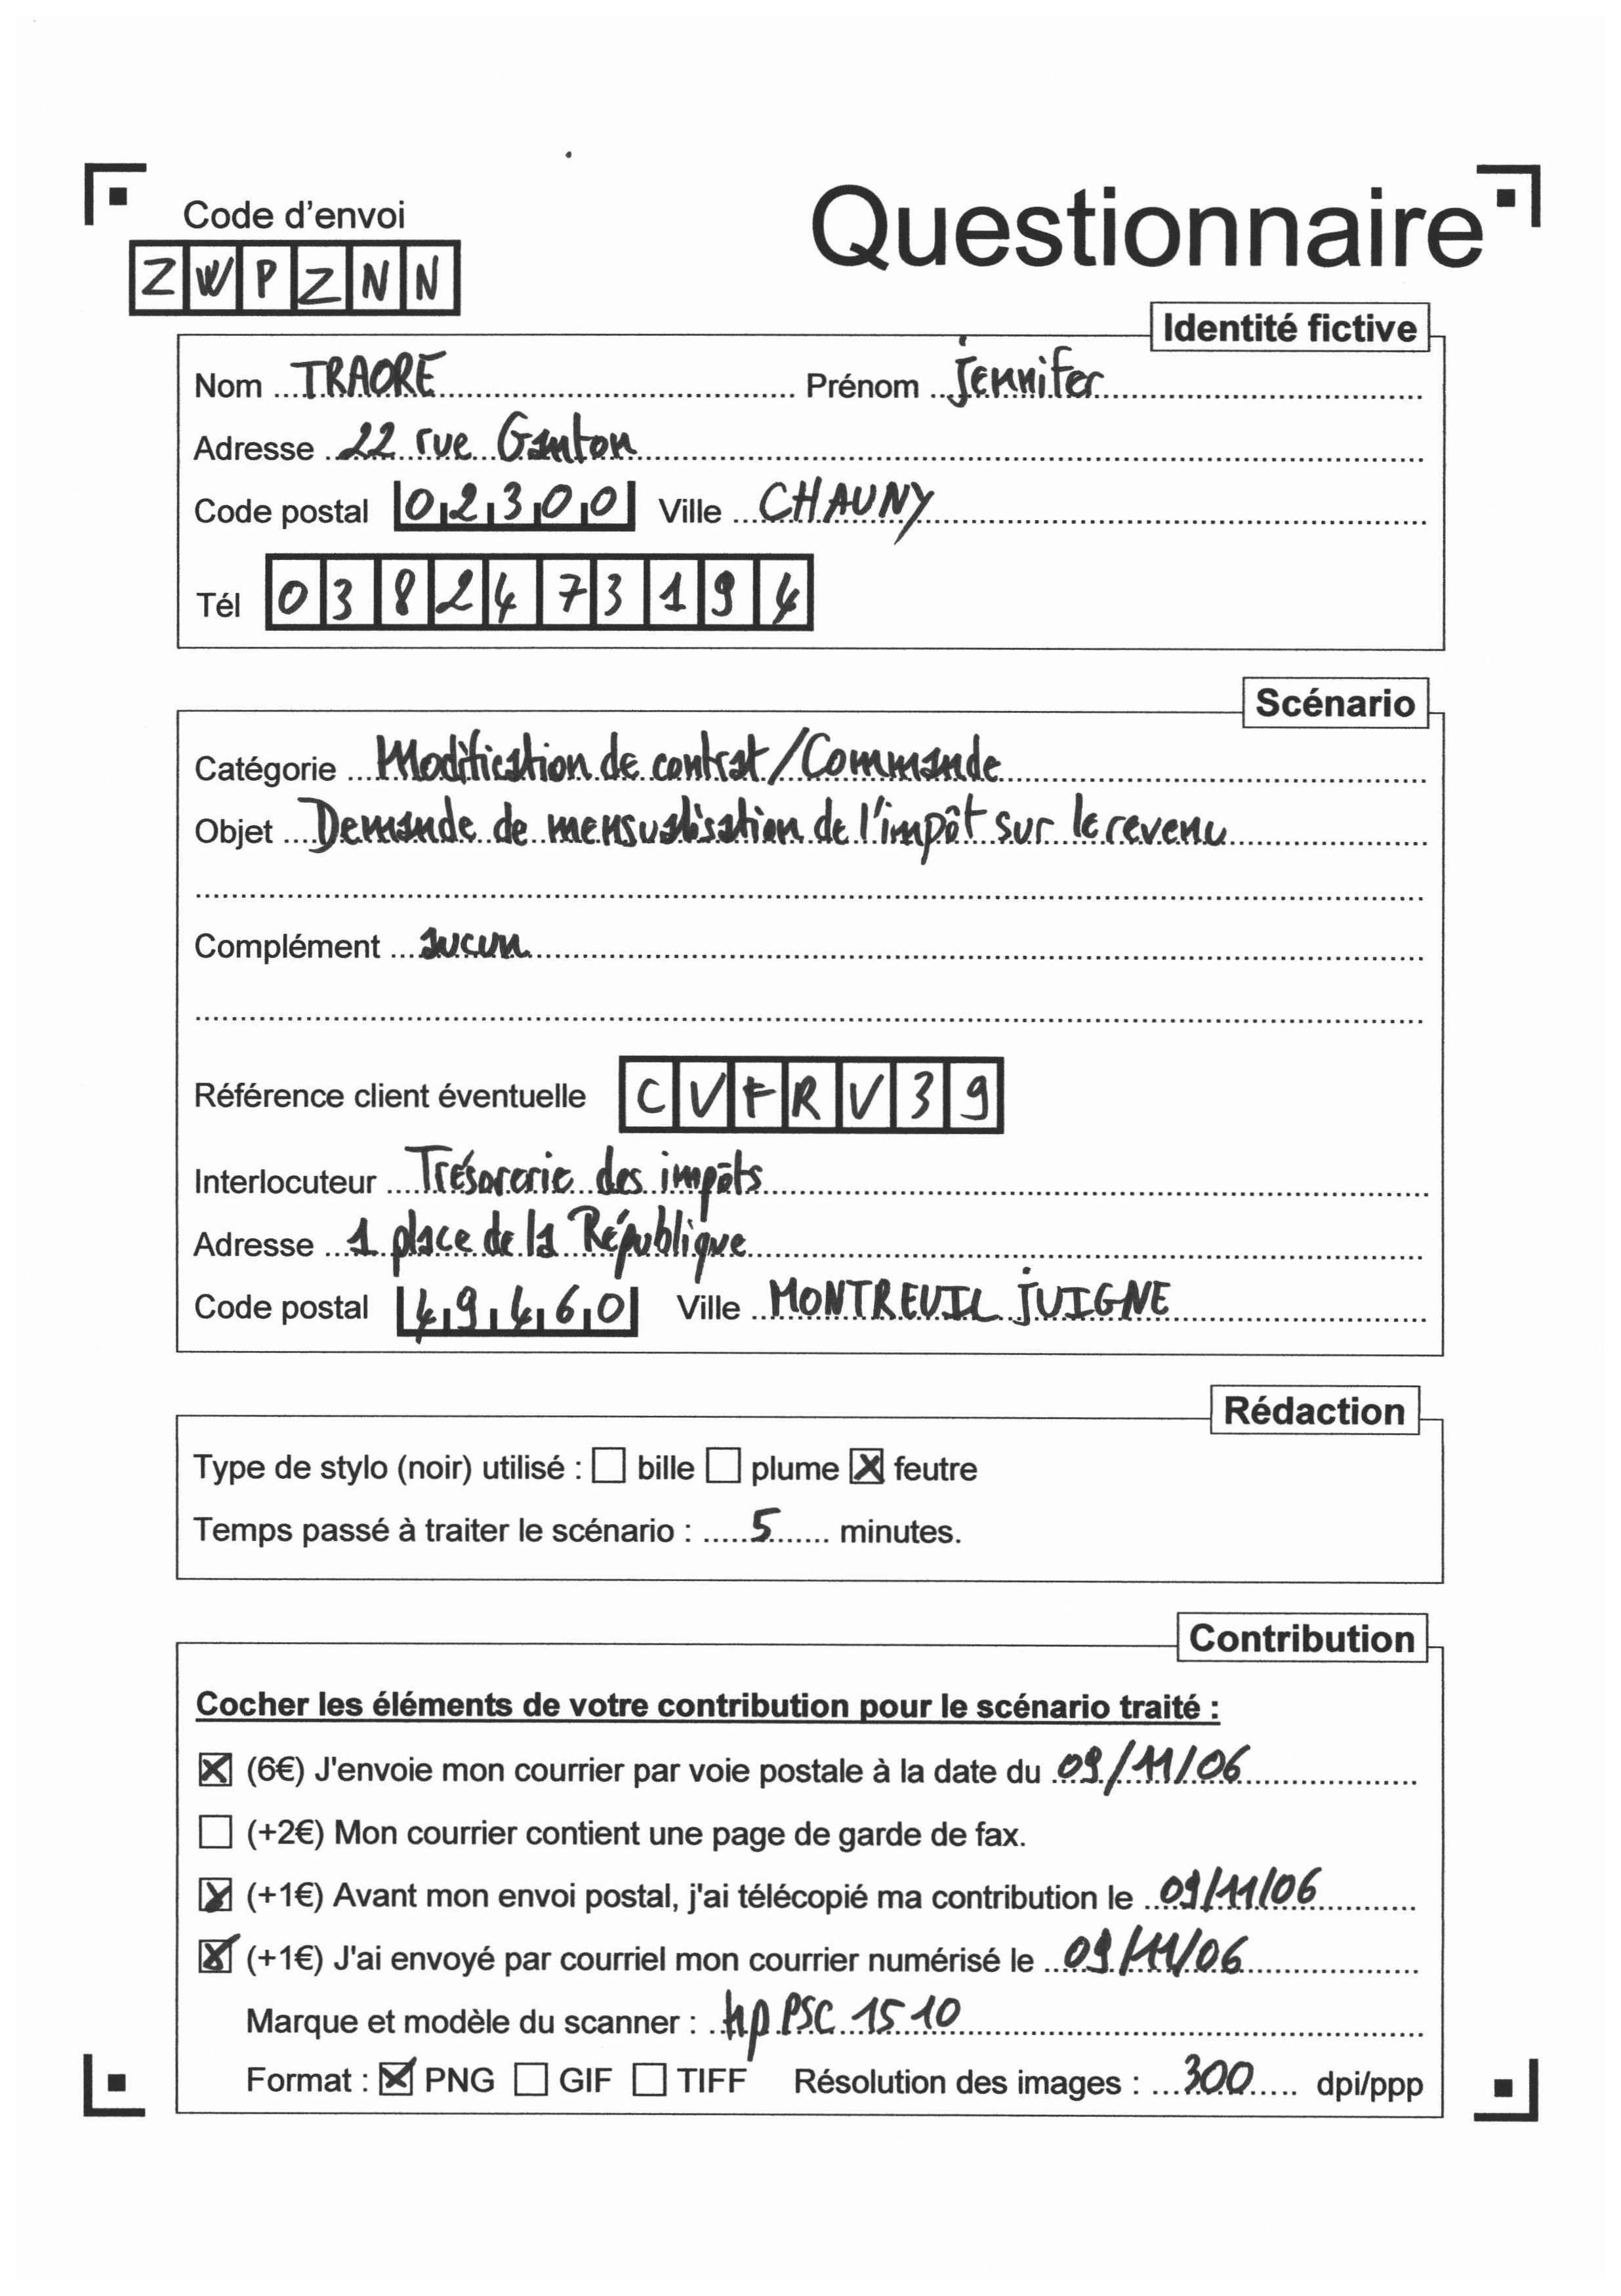 Code d'envoi
Questionnaire
ZWPZNN
Identité fictive
Nom TRAORE Prénom Jennifer
Adresse 22 rue Ganton
Code postal 02300 Ville CHAUNY
Tél 0382473194
Scénario
Catégorie Modification de contrat/Commande
Objet Demande de mensualisation de l'impôt sur le revenu
Complément aucun
Référence client éventuelle CVFRV39
Interlocuteur Trésorerie des impôts
Adresse 1 place de la République
Code postal 49460 Ville MONTREUIL JUIGNE
Rédaction
Type de stylo (noir) utilisé : ☐ bille ☐ plume ☒ feutre
Temps passé à traiter le scénario : 5 minutes.
Contribution
Cocher les éléments de votre contribution pour le scénario traité :
☒ (6€) J'envoie mon courrier par voie postale à la date du 09/11/06
☐ (+2€) Mon courrier contient une page de garde de fax.
☒ (+1€) Avant mon envoi postal, j'ai télécopié ma contribution le 09/11/06
☒ (+1€) J'ai envoyé par courriel mon courrier numérisé le 09/11/06
Marque et modèle du scanner : hp PSC 1510
Format : ☒ PNG ☐ GIF ☐ TIFF Résolution des images : 300 dpi/ppp